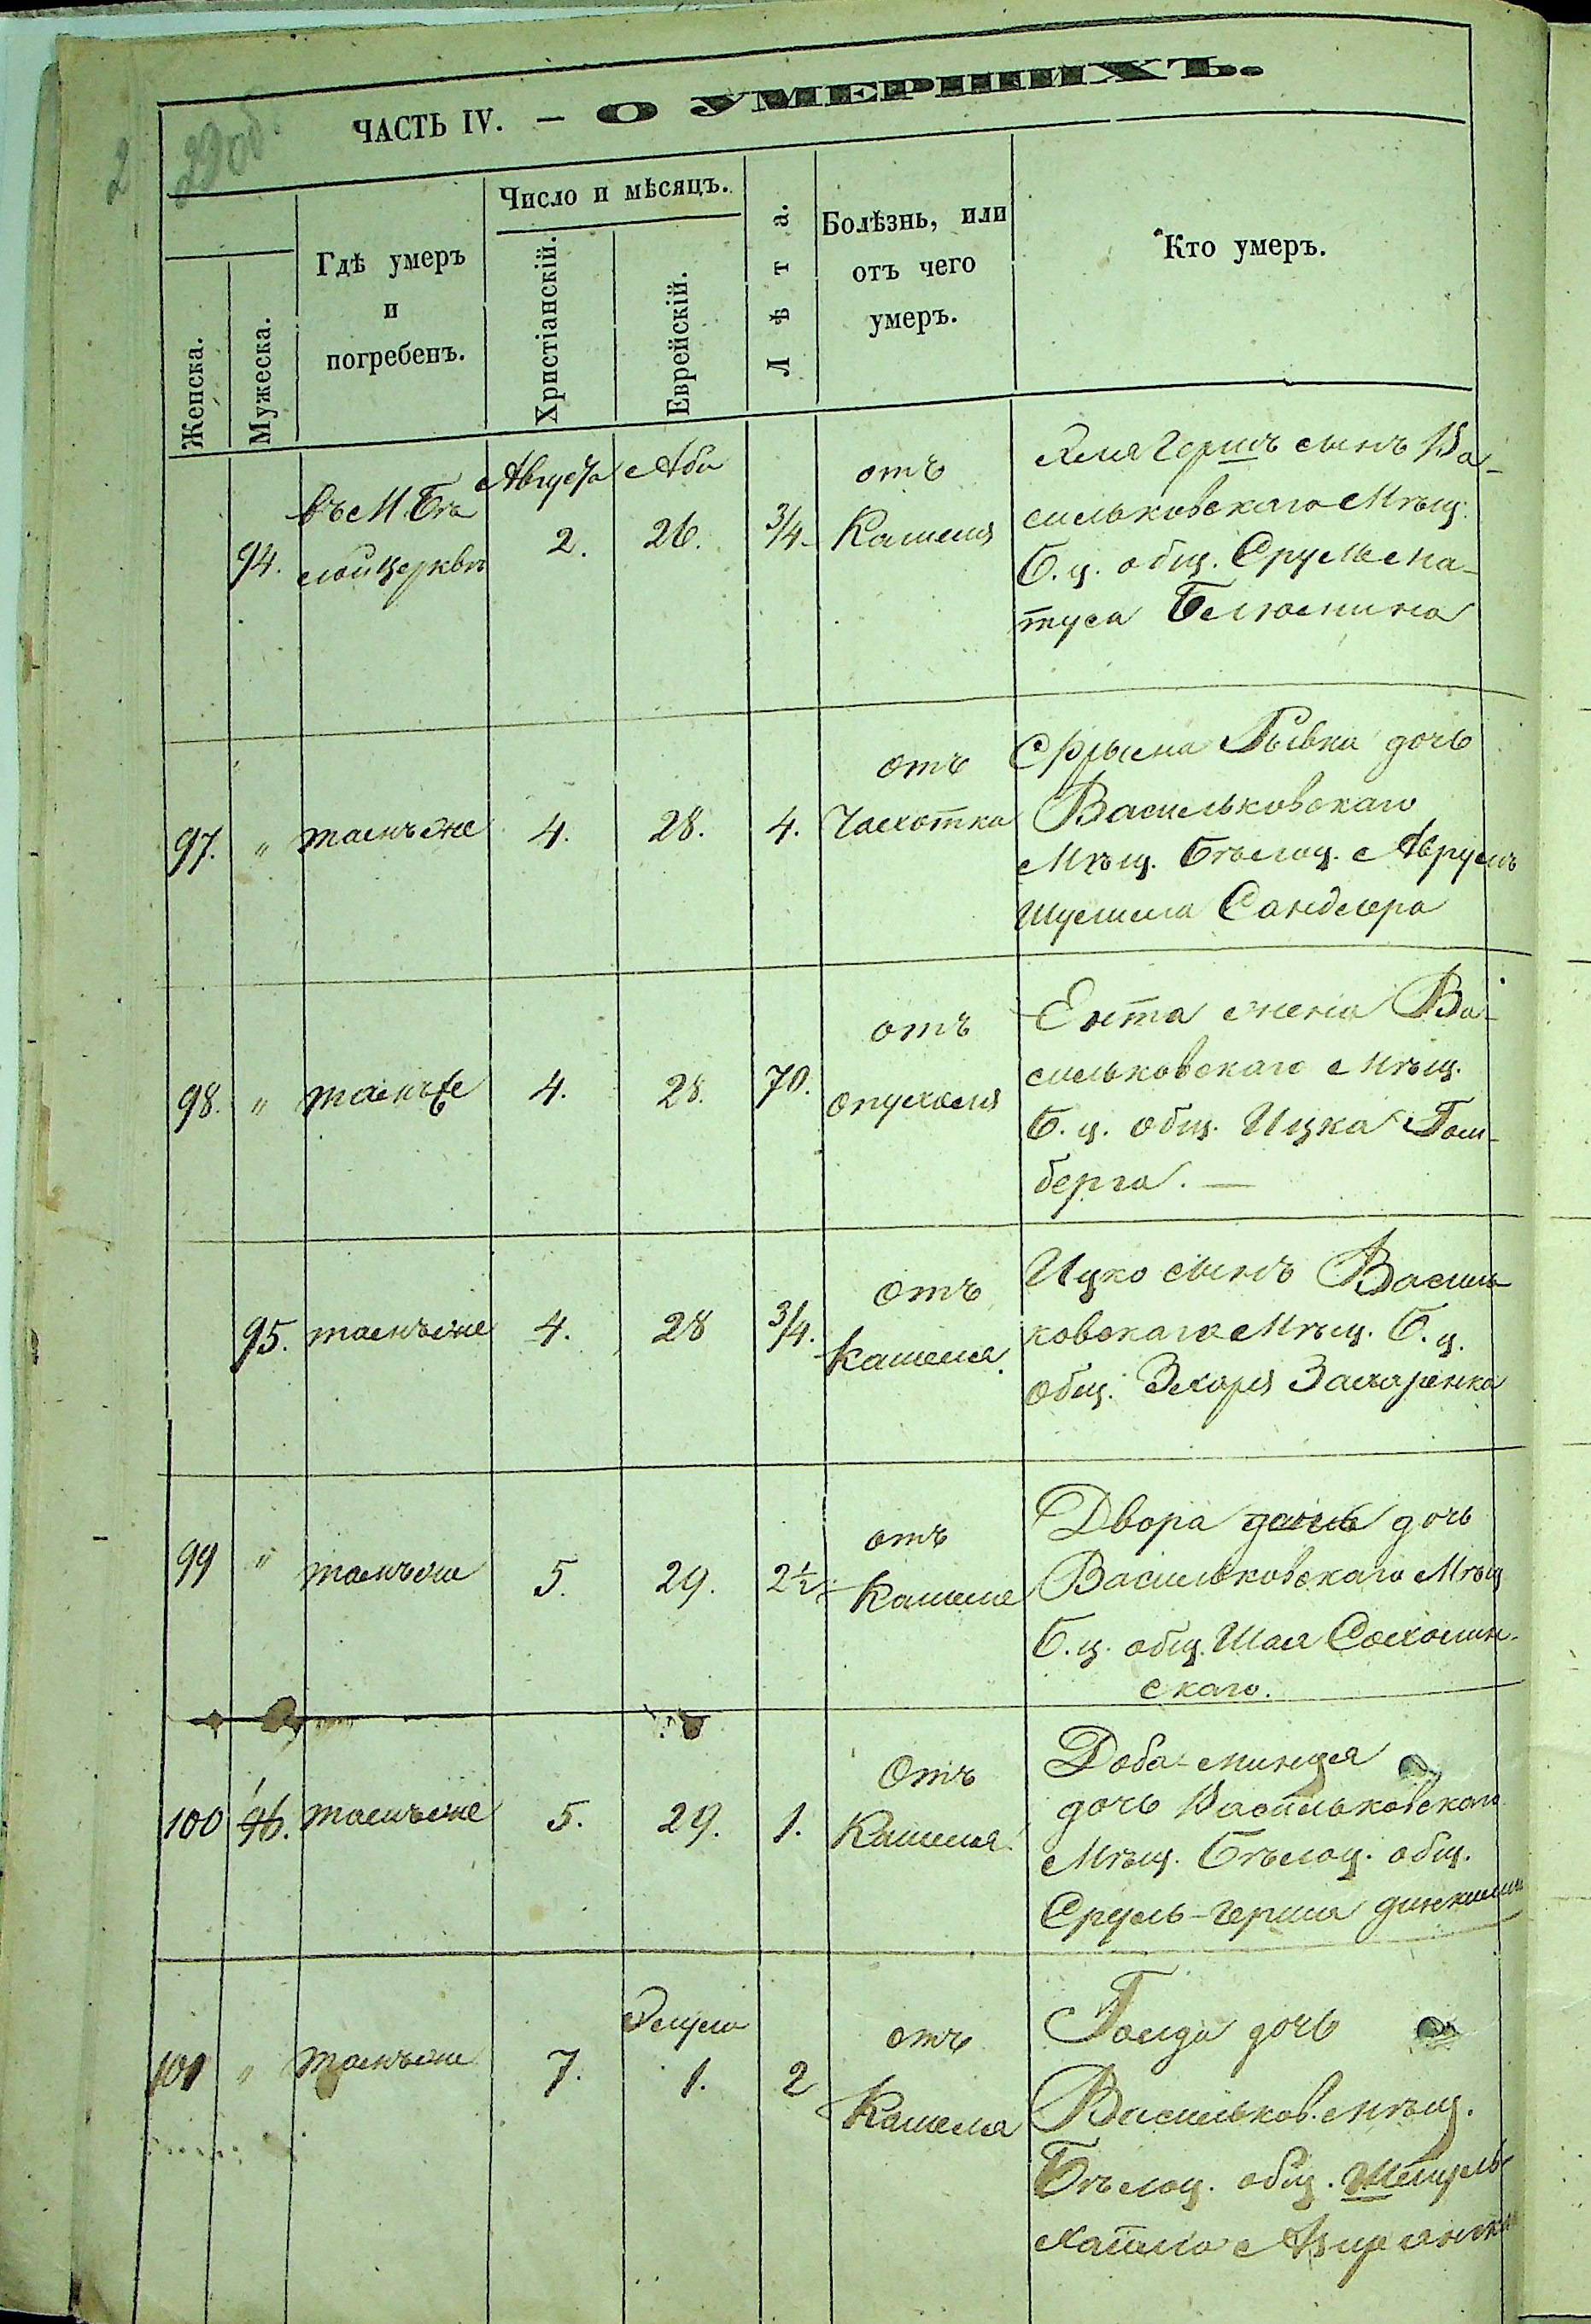 29 об.
ЧАСТЬ IV. — О УМЕРШИХЪ.
Женска.
Мужеска.
Гдѣ умеръ
и
погребенъ.
Число и мѣсяцъ.
Христіанскій.
Еврейскій.
Лѣта.
Болѣзнь, или
отъ чего
умеръ.
Кто умеръ.
94.
въ М. Бѣ
лой Церквѣ
Августа
2.
Аби
26.
3/4.
отъ
Кашеля
Герш сынъ Ва-
сильковскаго Мѣщ.
Б. ц. общ. Сруль
97. "
тамъ же
4.
28.
4.
отъ
Чахотка
Фрыма Рывка дочь
Васильковскаго
Мѣщ. Бѣлоц. Аврумъ
Шулима Сандлера
98. "
тамъ же
4.
28.
70.
отъ
опухоля
Ента жена Ва-
сильковскаго Мѣщ.
Б. ц. общ. Ицка
берга. —
95.
тамъ же
4.
28
3/4.
отъ
кашеля.
Ицко сынъ Василь
ковскаго Мѣщ. Б. ц.
общ. Захаренка
99 "
тамъ же
5.
29.
2 1/2
отъ
Кашеля
Двора дочь
Васильковскаго Мѣщ
Б. ц. общ. Шая
скаго.
100 96.
тамъ же
5.
29.
1.
Отъ
Кашеля
Доба-миндля
дочь Васильковскаго
Мѣщ. Бѣлоц. общ.
Сруль-Герша
101 "
тамъ же
7.
Элула
1.
2
отъ
Кашеля
Голда дочь
Васильков. мѣщ.
Бѣлоц. общ.